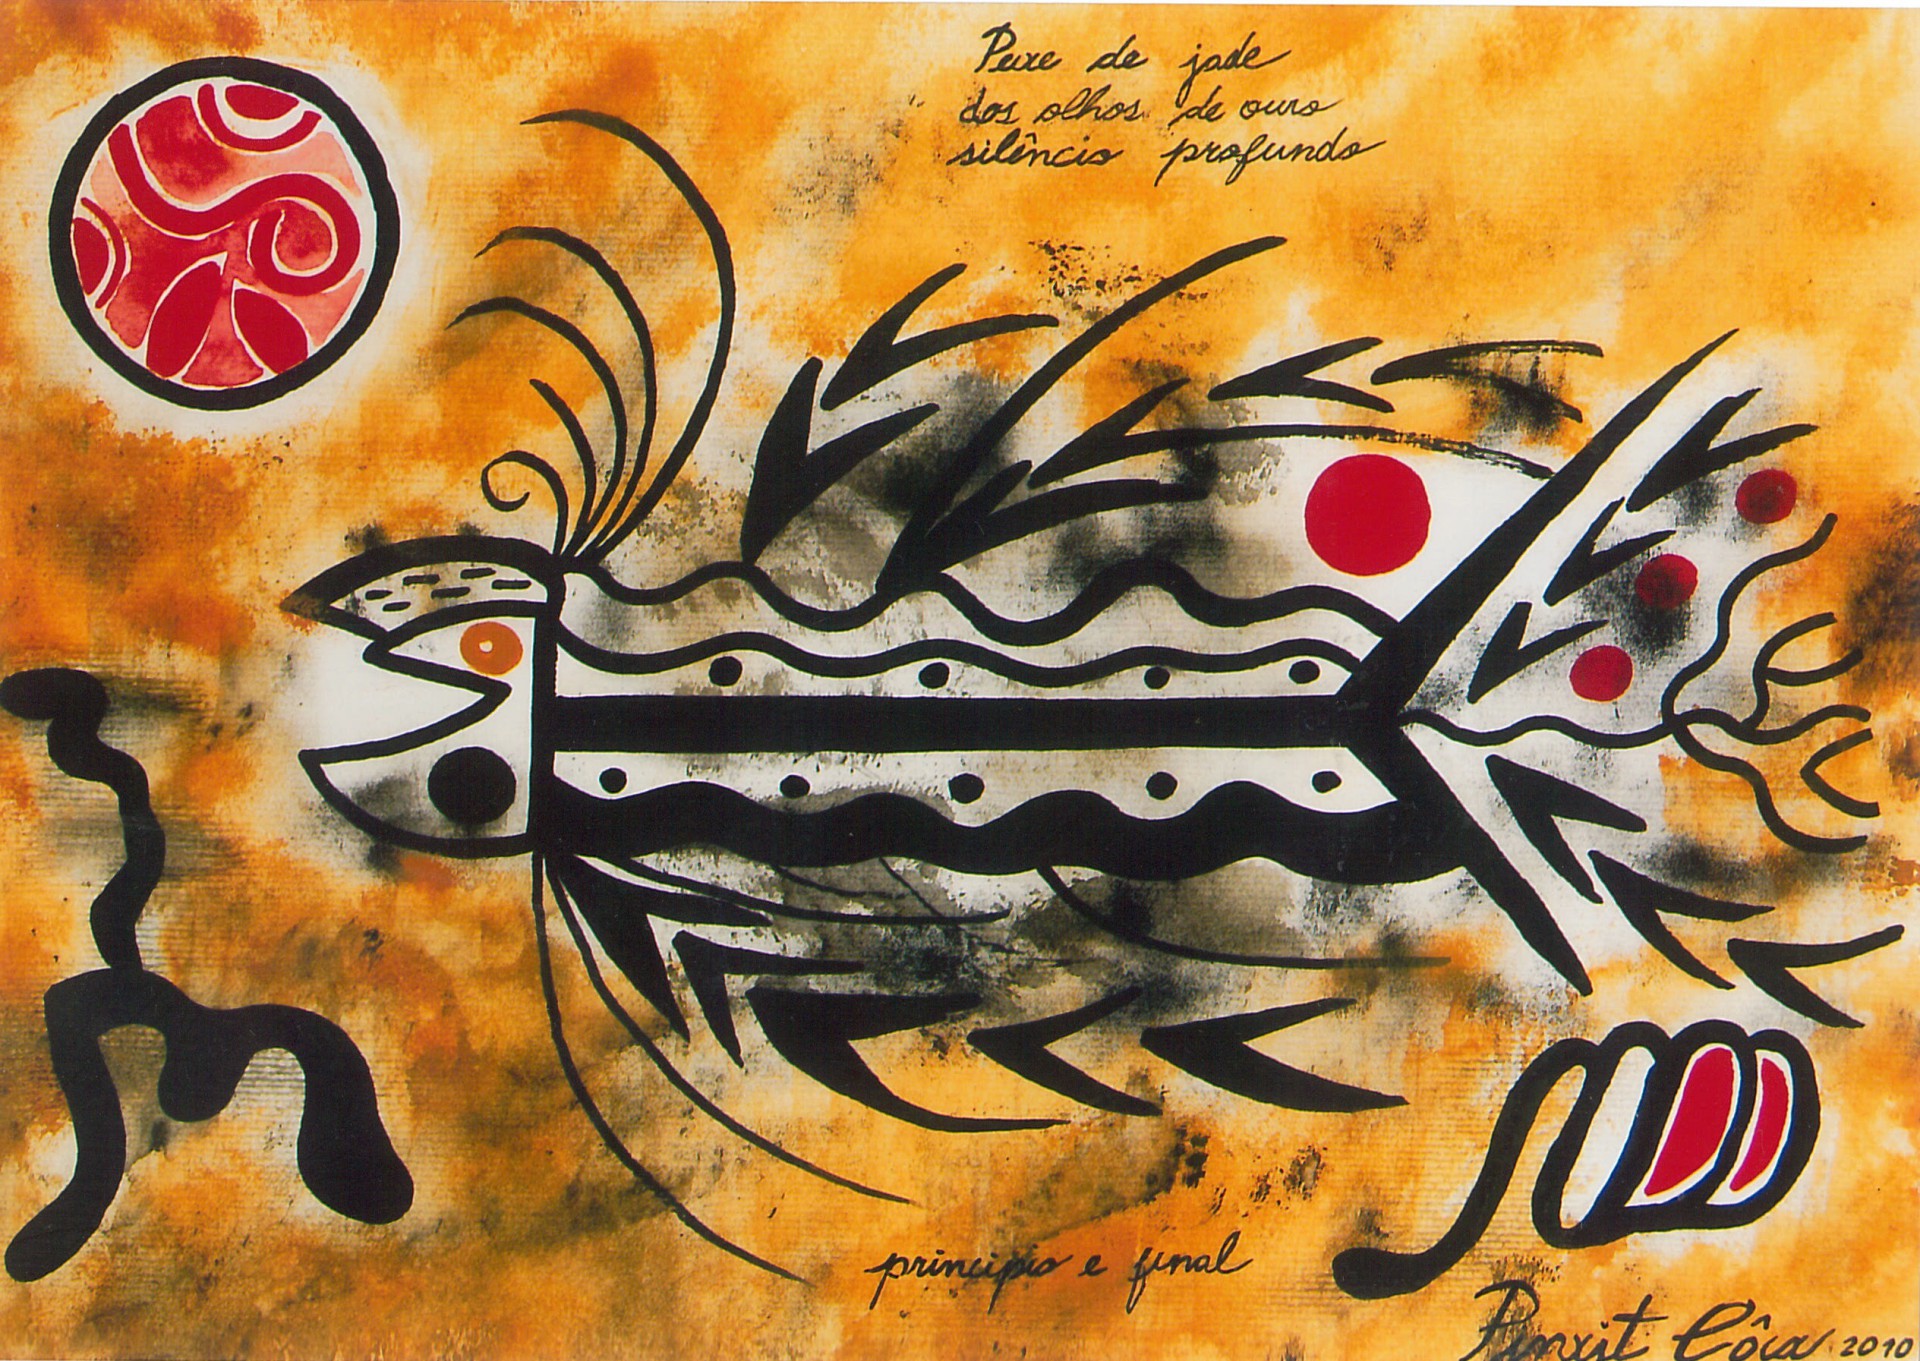 Peixe de jade
dos olhos de ouro
silêncio profundo
principio e final
Pinxit Côca 2010